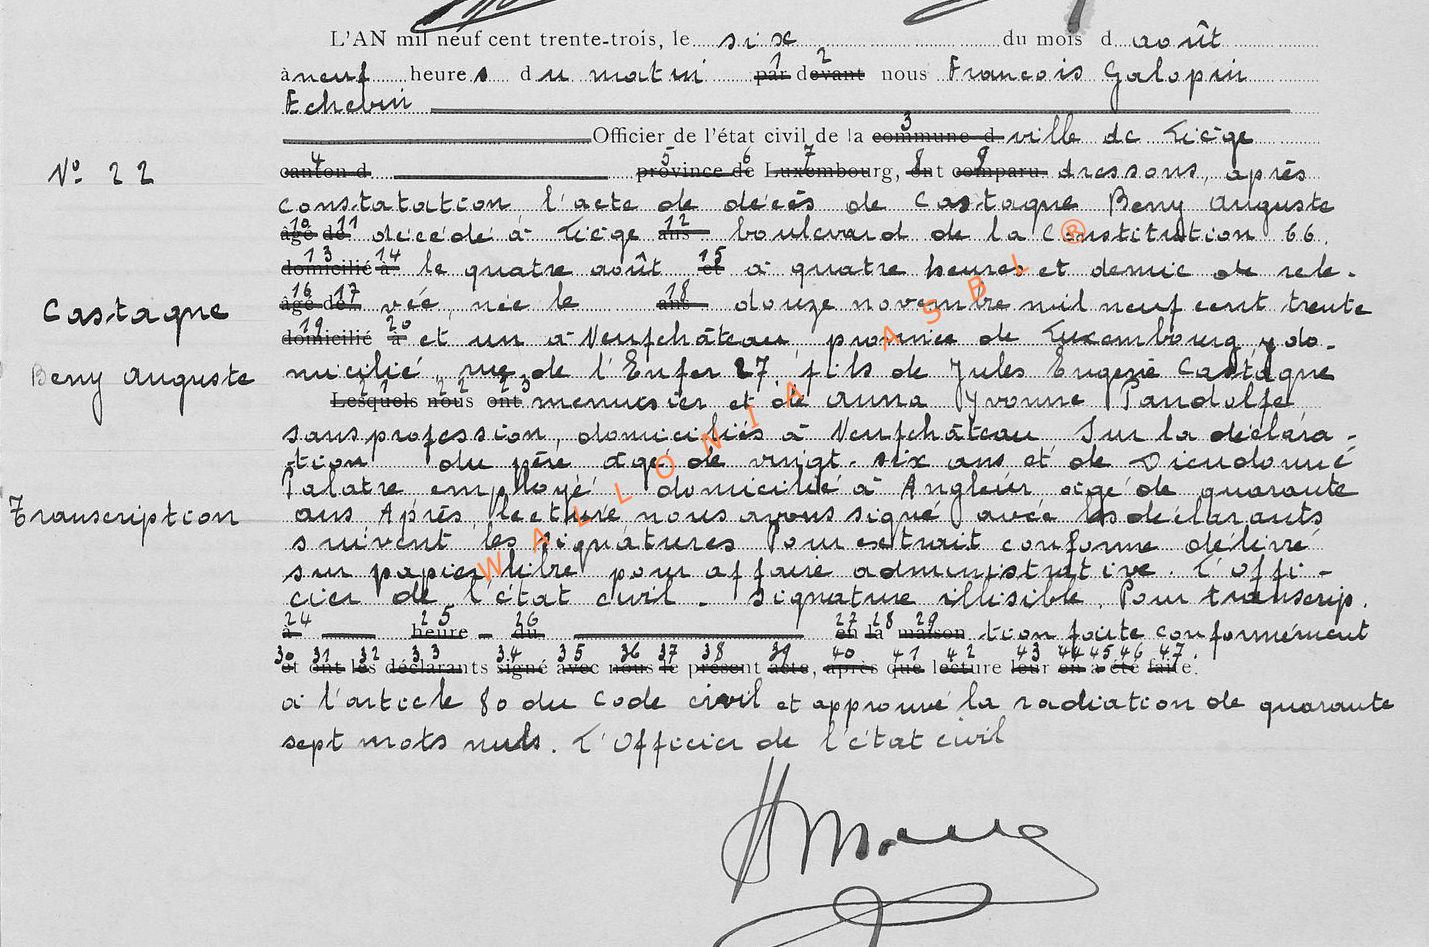 L'AN mil neuf cent trente-trois, le six du mois d août
à neuf heures du matin par devant nous François Galopin
Echevin
Officier de l'état civil de la commune d ville de Liège
N° 22
canton d province de Luxembourg, ont comparu dressons, après
constatation, l'acte de décès de Castagne Beny Auguste
âgé de décédé à Liège ans boulevard de la Constitution 66,
domicilié à le quatre août et à quatre heures et demie de rele-
âgé de vée, née le ans douze novembre mil neuf cent trente
Castagne
domicilié à et un à Neufchâteau, province de Luxembourg y do-
Beny Auguste
micilié, rue de l'Enfer 27, fils de Jules Eugène Castagne
Lesquels nous ont menuisier et de Anna Yvonne Pandolfe,
sans profession, domiciliés à Neufchâteau Sur la déclara-
tion du père âgé de vingt-six ans et de Dieudonné
Palatre employé domicilié à Angleur, âgé de quarante
Transcription
ans. Après lecture nous avons signé avec les déclarants
suivent les signatures Pour extrait conforme délivré
sur papier libre pour affaire administrative. L'offi-
cier de l'état civil - Signature illisible. Pour transcrip.
à heure du en la maison tion faite conformément
et ont les déclarants signé avec nous le présent acte, après que lecture leur en a été faite.
à l'article 80 du Code civil et approuvé la radiation de quarante
sept mots nuls. L'Officier de l'état civil
WALLONIA ASBL ®